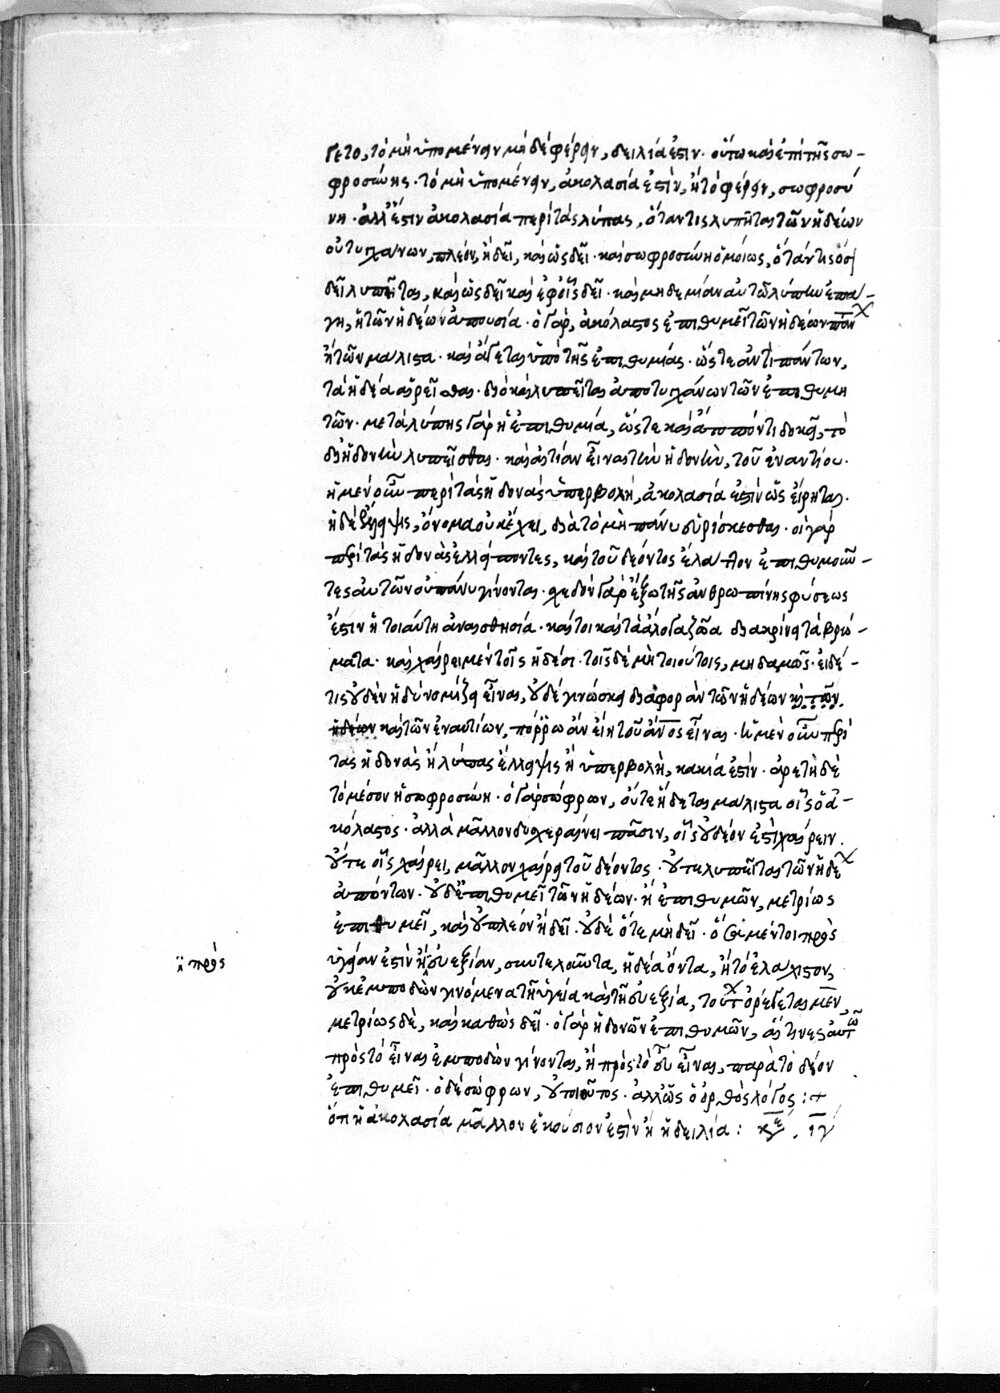 γετο, τὸ μὴ ὑπομένειν μὴ δὲ φέρειν, δειλία ἐστιν· οὕτω καὶ ἐπὶ τῆς σω-
φροσύνης· τὸ μὴ ὑπομένειν, ἀκολασία ἐστὶν, ἢ τὸ φέρειν, σωφροσύ
νη· ἀλλ' ἔστιν ἀκολασία περὶ τὰς λύπας, ὅταν τις λυπῆται τῶν ἡδέων
οὐ τυγχάνων, πλέον, ἢ δεῖ, καὶ ὡς δεῖ· καὶ σωφροσύνη ὁμοίως, ὅταν τις
δεῖ λυπῆται, καὶ ὡς δεῖ καὶ ἐφ' οἷς δεῖ· καὶ μηδεμίαν αὐτῶ λύπην ἐπά-
γη, ἡ τῶν ἡδέων ἀπουσία· ὁ γὰρ, ἀκόλαστος ἐπιθυμεῖ τῶν ἡδέων πάν
ἢ τῶν μάλιστα· καὶ ἄγεται ὑπὸ τῆς ἐπιθυμίας· ὥστε ἀντὶ πάντων,
τὰ ἡδέα αἱρεῖσθαι· διὸ καὶ λυπεῖται ἀποτυγχάνων τῶν ἐπιθυμη
τῶν· μετὰ λύπης γὰρ ἡ ἐπιθυμία, ὥστε καὶ ἄτοπόν τι δοκεῖ, τὸ
δι' ἡδονὴν λυπεῖσθαι· καὶ αἰτίαν εἶναι τὴν ἡδονὴν, τοῦ ἐναντίου·
ἡ μὲν οὖν περὶ τὰς ἡδονὰς ὑπερβολὴ, ἀκολασία ἐστὶν ὡς εἴρηται·
ἡ δὲ ἔλλειψις, ὄνομα οὐκ ἔχει, διὰ τὸ μὴ πάνυ εὑρίσκεσθαι· οἱ γὰρ
περὶ τὰς ἡδονὰς ἐλλείποντες, καὶ τοῦ δέοντος ἔλαττον ἐπιθυμοῦν-
τες αὐτῶν οὐ πάνυ γίνονται· σχεδὸν γὰρ ἔξω τῆς ἀνθρωπίνης φύσεως
ἐστὶν ἡ τοιαύτη ἀναισθησία· καίτοι καὶ τὰ ἄλογα ζῶα διακρίνει τὰ βρώ-
ματα· καὶ χαίρει μὲν τοῖς ἡδέσι· τοῖς δὲ μὴ τοιούτοις, μηδαμῶς· εἰ δέ-
τις οὐδὲν ἡδὺ νομίζει εἶναι, οὐδὲ γινώσκει διαφορὰν τῶν ἡδέων κ τῶν
ἡδέων καὶ τῶν ἐναντίων, πόρρω ἂν εἴη τοῦ ἀνος εἶναι· ἡ μὲν οὖν περὶ
τὰς ἡδονὰς ἢ λύπας ἔλλειψις ἢ ὑπερβολὴ, κακία ἐστὶν· ἀρετὴ δὲ
τὸ μέσον ἡ σωφροσύνη· ὁ γὰρ σώφρων, οὔτε ἥδεται μάλιστα οἷς ὁ ἀ-
κόλαστος· ἀλλὰ μᾶλλον δυσχεραίνει πᾶσιν, οἷς οὐ δέον ἐστὶ χαίρειν.
οὔτε οἷς χαίρει, μᾶλλον χαίρει τοῦ δέοντος· οὔτε λυπεῖται τῶν ἡδέ
ἀπόντων· οὐδ' ἐπιθυμεῖ τῶν ἡδέων· ἢ ἐπιθυμῶν, μετρίως
ἐπιθυμεῖ, καὶ οὐ πλέον ἢ δεῖ· οὐδὲ ὅτε μὴ δεῖ· ὅσα μέντοι πρὸς
ὑγείαν ἐστὶν ἢ εὐεξίαν, συντελοῦντα, ἡδέα ὄντα, ἢ τὸ ἐλάχιστον,
οὐκ ἐμποδὼν γινόμενα τῆ ὑγεία καὶ τῆ εὐεξία, τούτ ὀρέγεται μὲν,
μετρίως δὲ, καὶ καθὼς δεῖ· ὁ γὰρ ἡδονῶν ἐπιθυμῶν, αἵ τινες αὐτῶ
πρὸς τὸ εἶναι ἐμποδὼν γίνονται, ἢ πρὸς τὸ εὖ εἶναι, παρὰ τὸ δέον
ἐπιθυμεῖ· ὁ δὲ σώφρων, οὐ τοιοῦτος· ἀλλ' ὡς ὁ ὀρθὸς λόγος :+
ὅτι ἡ ἀκολασία μᾶλλον ἑκούσιόν ἐστιν ἢ ἡ δειλία : κε. ιγ
πρὸς